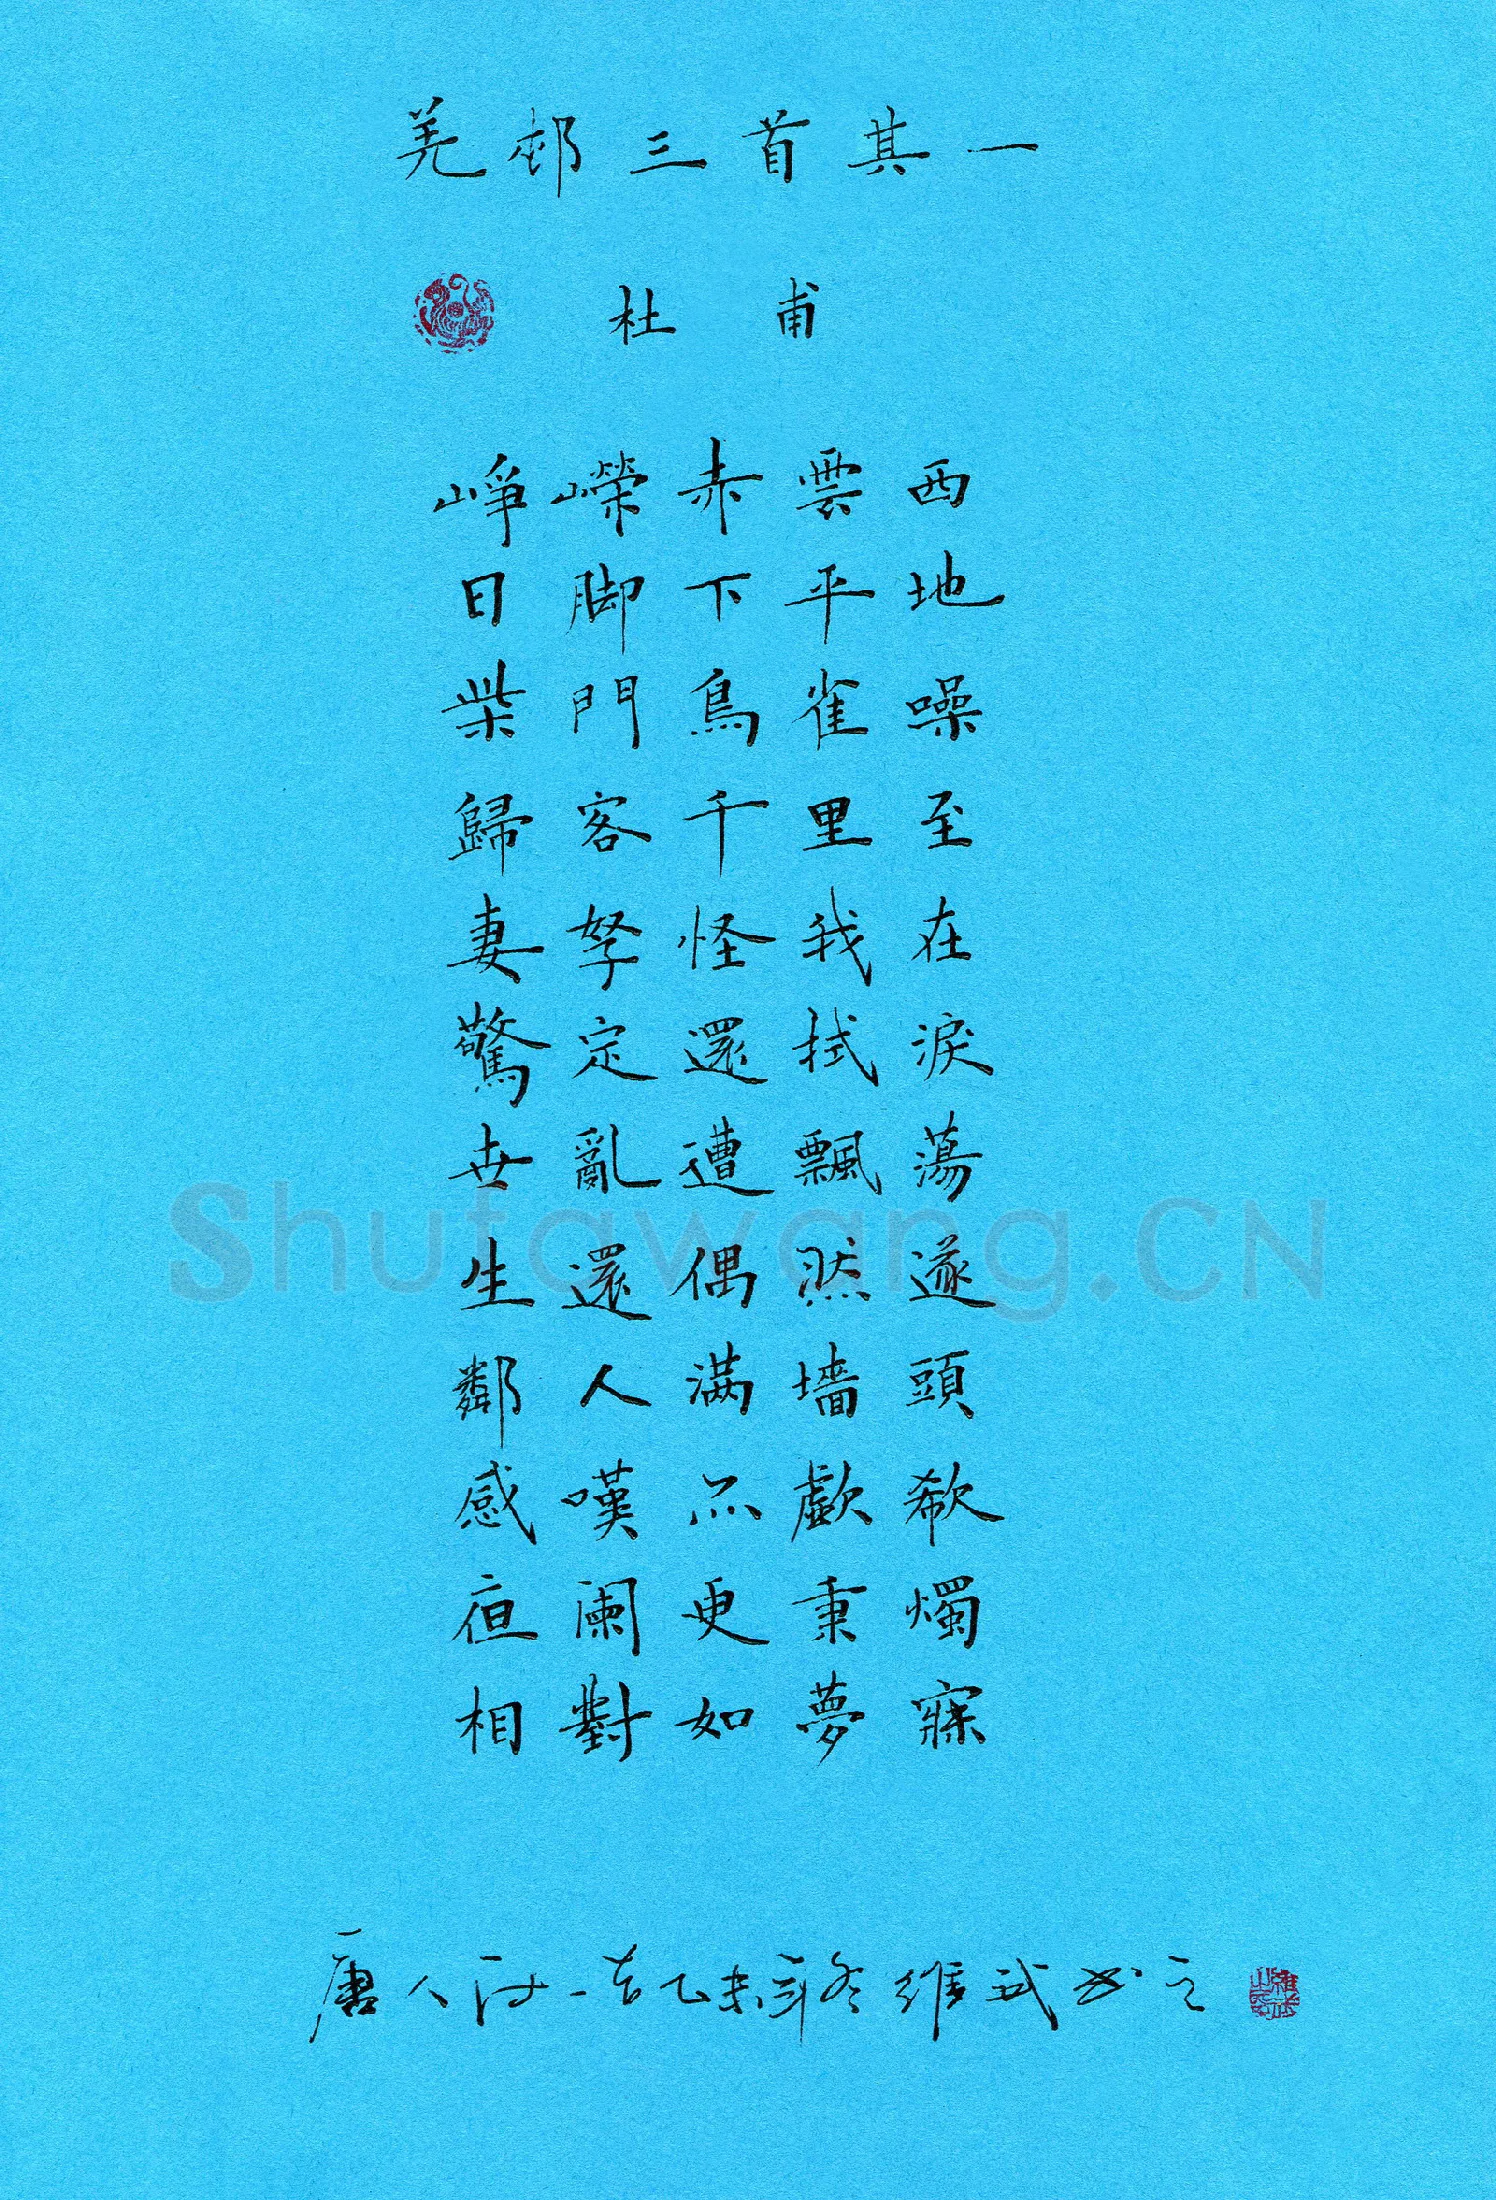 羌邨三首其一
杜甫
崢嶸赤雲西
日脚下平地
柴門鳥雀噪
歸客千里至
妻孥怪我在
驚定還拭淚
世亂遭飄蕩
生還偶然遂
鄰人满墻頭
感嘆亦歔欷
夜阑更秉燭
相對如夢寐
唐人诗一首乙未年冬維武书之
Shufawang.CN